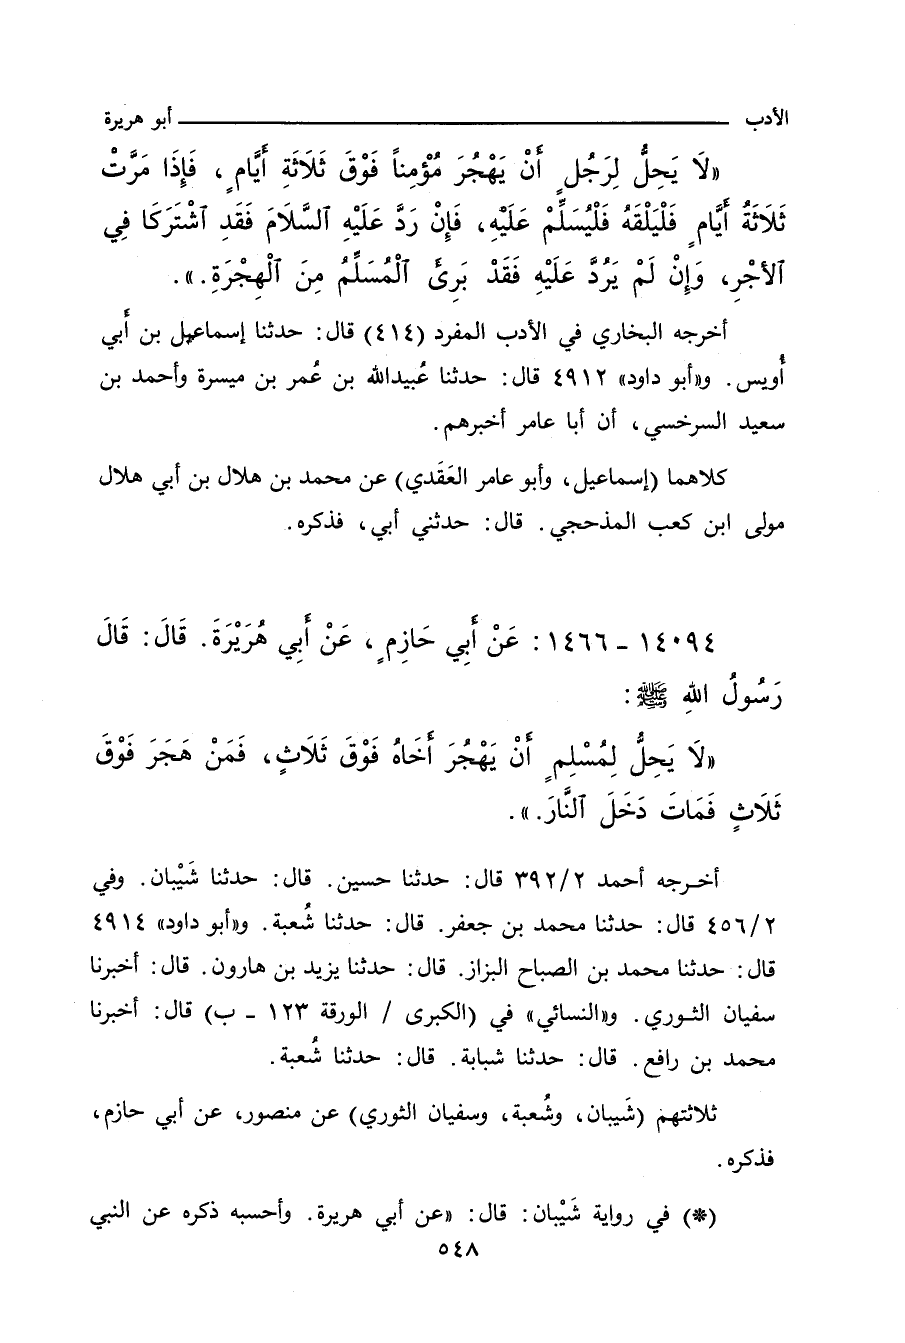 الأدب ــــــــــــــــــــ أبو هريرة
«لَا يَحِلُّ لِرَجُلٍ أَنْ يَهْجُرَ مُؤْمِناً فَوْقَ ثَلَاثَةِ أَيَّامٍ، فَإِذَا مَرَّتْ
ثَلَاثَةُ أَيَّامٍ فَلْيَلْقَهُ فَلْيُسَلِّمْ عَلَيْهِ، فَإِنْ رَدَّ عَلَيْهِ ٱلسَّلَامَ فَقَدِ ٱشْتَرَكَا فِي
ٱلأَجْرِ، وَإِنْ لَمْ يَرُدَّ عَلَيْهِ فَقَدْ بَرِئَ ٱلْمُسَلِّمُ مِنَ ٱلْهِجْرَةِ.».
أخرجه البخاري في الأدب المفرد (٤١٤) قال: حدثنا إسماعيل بن أبي
أُويس. و«أبو داود» ٤٩١٢ قال: حدثنا عُبيدالله بن عُمر بن ميسرة وأحمد بن
سعيد السرخسي، أن أبا عامر أخبرهم.
كلاهما (إسماعيل، وأبو عامر العَقَدي) عن محمد بن هلال بن أبي هلال
مولى ابن كعب المذحجي. قال: حدثني أبي، فذكره.
١٤٠٩٤ - ١٤٦٦: عَنْ أَبِي حَازِمٍ، عَنْ أَبِي هُرَيْرَةَ. قَالَ: قَالَ
رَسُولُ اللهِ ﷺ:
«لَا يَحِلُّ لِمُسْلِمٍ أَنْ يَهْجُرَ أَخَاهُ فَوْقَ ثَلَاثٍ، فَمَنْ هَجَرَ فَوْقَ
ثَلَاثٍ فَمَاتَ دَخَلَ ٱلنَّارَ.».
أخرجه أحمد ٣٩٢/٢ قال: حدثنا حسين. قال: حدثنا شَيْبان. وفي
٤٥٦/٢ قال: حدثنا محمد بن جعفر. قال: حدثنا شُعبة. و«أبو داود» ٤٩١٤
قال: حدثنا محمد بن الصباح البزاز. قال: حدثنا يزيد بن هارون. قال: أخبرنا
سفيان الثوري. و«النسائي» في (الكبرى / الورقة ١٢٣ - ب) قال: أخبرنا
محمد بن رافع. قال: حدثنا شبابة. قال: حدثنا شُعبة.
ثلاثتهم (شَيبان، وشُعبة، وسفيان الثوري) عن منصور، عن أبي حازم،
فذكره.
(*) في رواية شَيْبان: قال: «عن أبي هريرة. وأحسبه ذكره عن النبي
٥٤٨